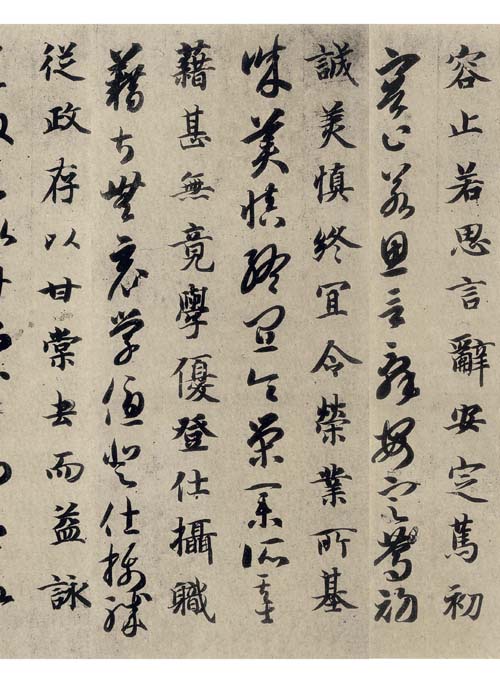 容止若思言辭安定篤初
容止若思言辭安定篤初
誠美慎終宜令榮業所基
誠美慎終宜令榮業所基
藉甚無竟學優登仕攝職
藉甚無竟學優登仕攝職
從政存以甘棠去而益詠